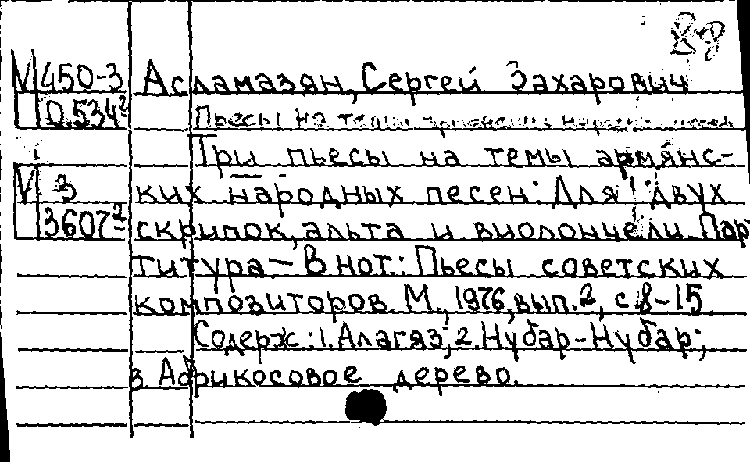 88
V 450-3 Асламазян, Сергей Захарович
0.534² Пьесы на темы армянских народных песен
Три пьесы на темы армянс-
V 3 ких народных песен: Для двух
3607² скрипок, альта и виолончели. Пар
титура – В нот.: Пьесы советских
композиторов. М., 1976, вып. 2, с 8-15
Содерж: 1. Алагяз; 2. Нубар-Нубар;
3. Абрикосовое дерево.